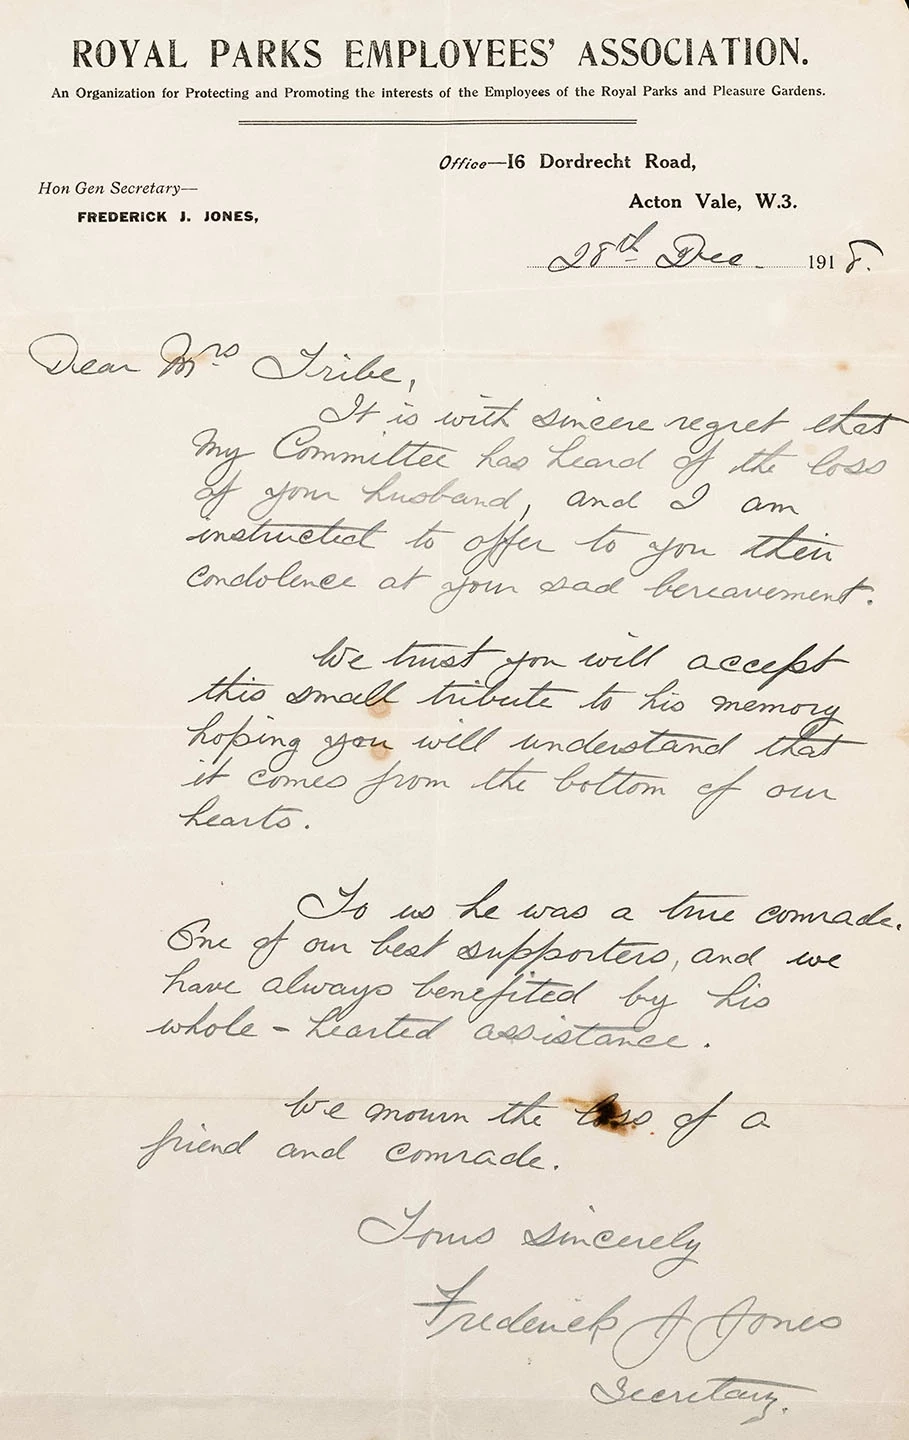 ROYAL PARKS EMPLOYEES' ASSOCIATION.
An Organization for Protecting and Promoting the interests of the Employees of the Royal Parks and Pleasure Gardens.
Office—16 Dordrecht Road,
Hon Gen Secretary—
Acton Vale, W.3.
FREDERICK J. JONES,
28th Dec. 1918.
Dear Mrs Tribe,
It is with sincere regret that
my Committee has heard of the loss
of your husband, and I am
instructed to offer to you their
condolence at your sad bereavement.
We trust you will accept
this small tribute to his memory
hoping you will understand that
it comes from the bottom of our
hearts.
To us he was a true comrade.
One of our best supporters, and we
have always benefited by his
whole-hearted assistance.
We mourn the loss of a
friend and comrade.
Yours sincerely
Frederick J Jones
Secretary.